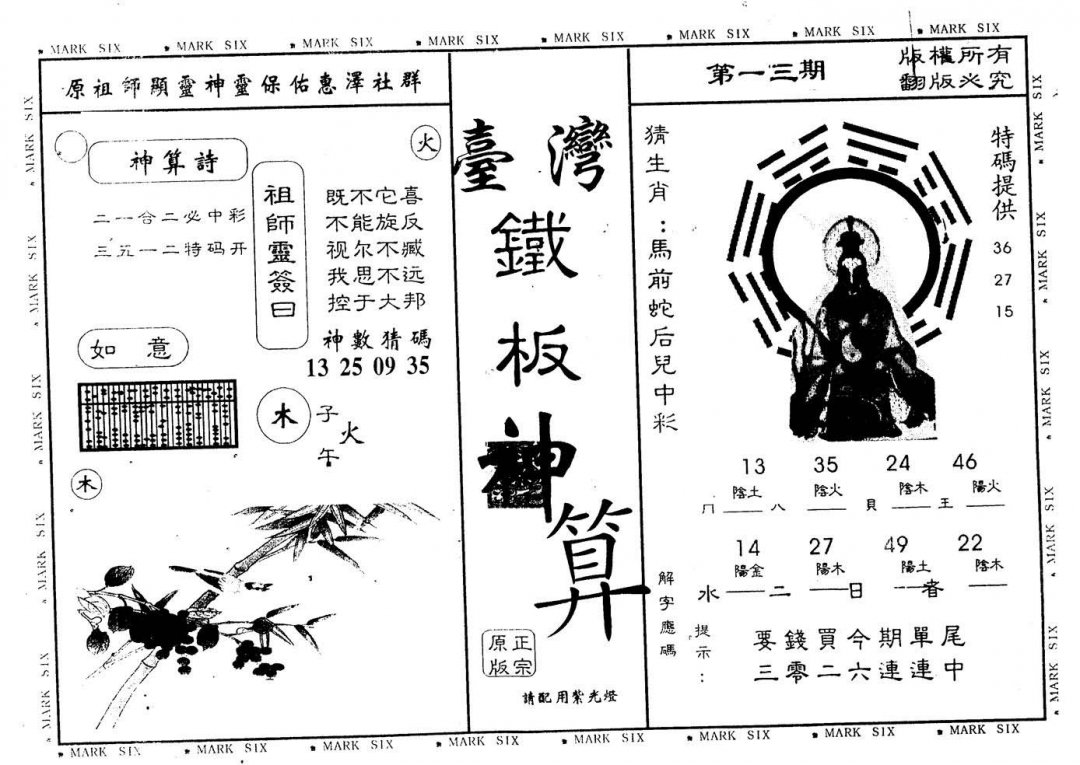 MARK SIX MARK SIX MARK SIX MARK SIX MARK SIX MARK SIX MARK SIX MARK SIX
原祖師顯靈神靈保佑惠澤社群
火
神算詩
二一合二必中彩
三五一二特码开
祖師靈簽曰
既不它喜
不能旋反
视尔不臧
我思不远
控于大邦
神數猜碼
13 25 09 35
如意
木
子
火
午
木
臺灣
鐵
板
神
算
正宗
原版
請配用紫光燈
第一三期
版權所有
翻版必究
猜生肖：馬前蛇后兒中彩
特碼提供
36
27
15
13 35 24 46
陰土 陰火 陰木 陽火
冂 八 貝 王
14 27 49 22
陽金 陽木 陽土 陰木
水 二 日 者
解字應碼
提示：
要錢買今期單尾
三零二六連連中
MARK SIX MARK SIX MARK SIX MARK SIX MARK SIX MARK SIX MARK SIX MARK SIX
MARK SIX MARK SIX MARK SIX MARK SIX MARK SIX
MARK SIX MARK SIX MARK SIX MARK SIX MARK SIX